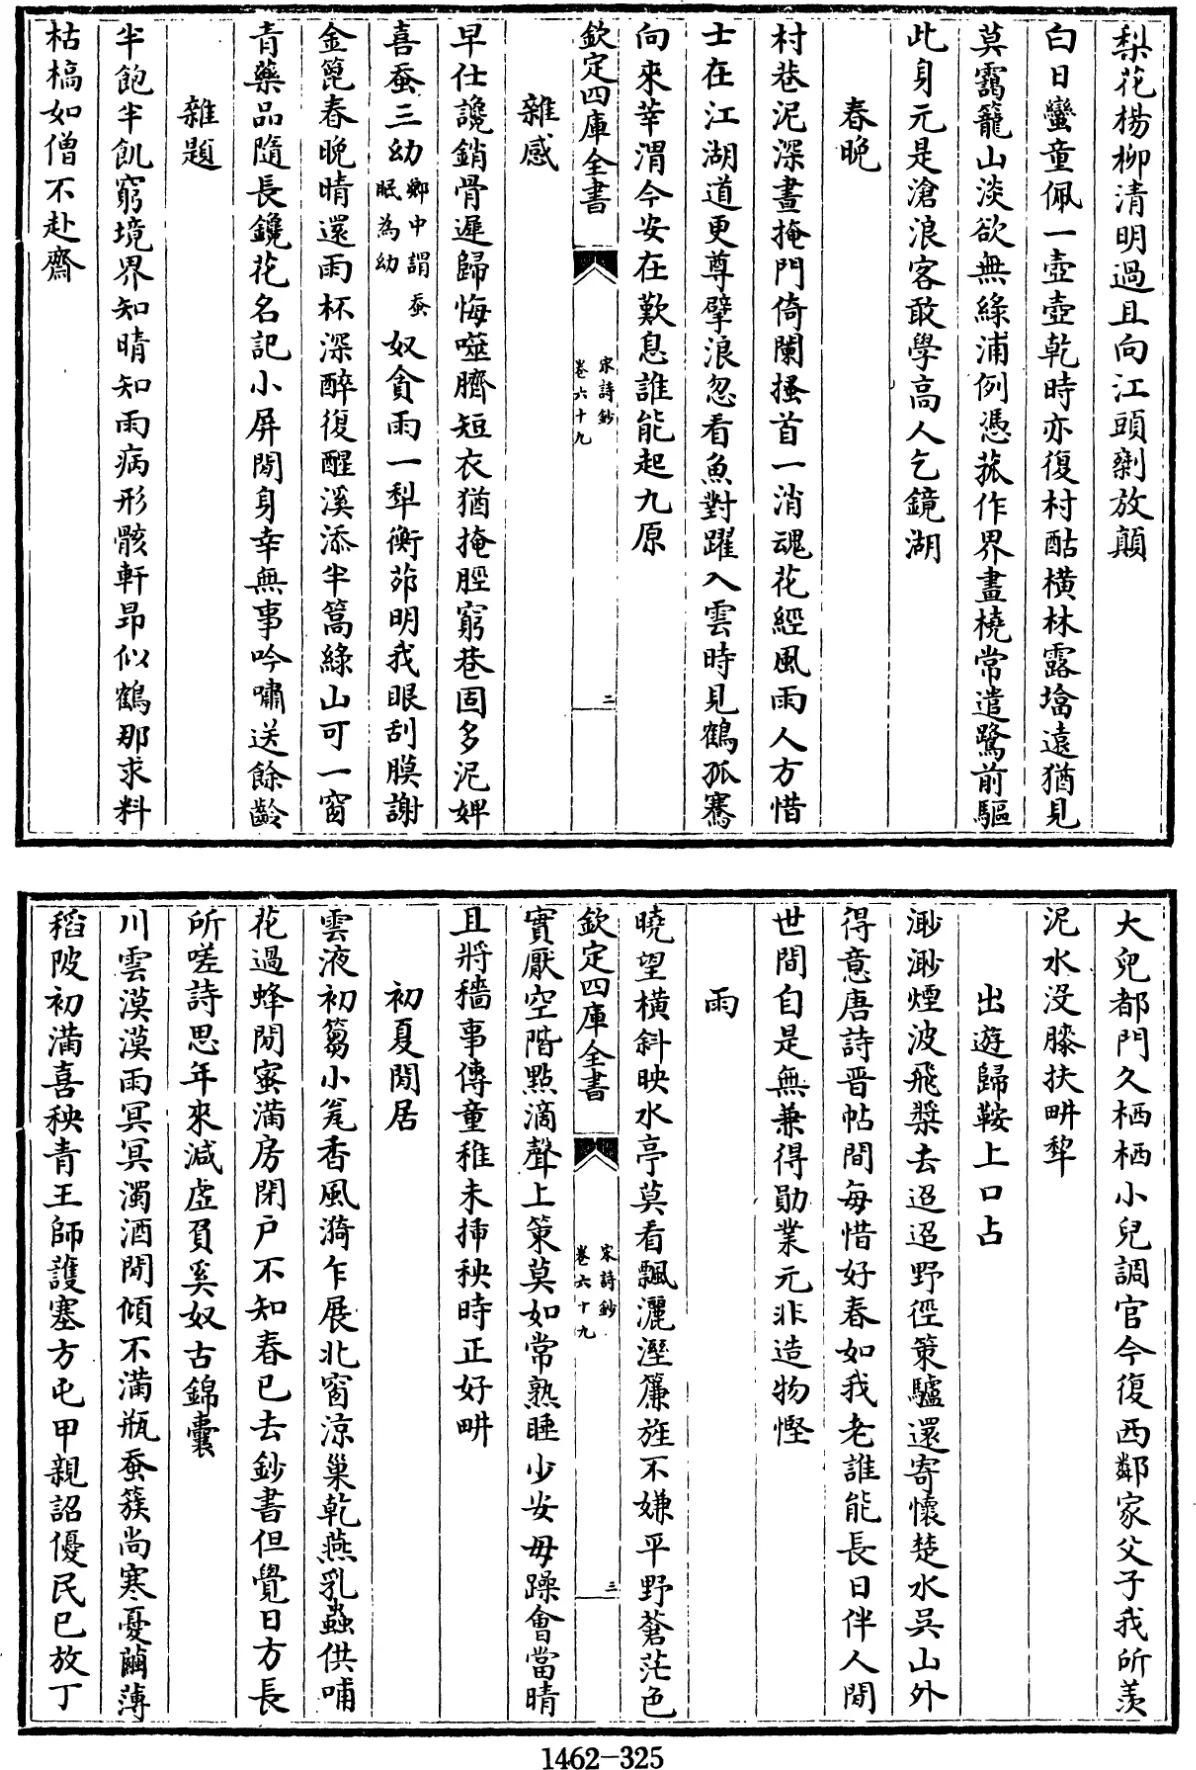 梨花楊柳清明過且向江頭剩放顛
白日蠻童佩一壺壺乾時亦復村酤橫林露塔遠猶見
莫靄籠山淡欲無綠浦例憑菰作界畫橈常遣鷺前驅
此身元是滄浪客敢學高人乞鏡湖
春晚
村巷泥深晝掩門倚闌搔首一消魂花經風雨人方惜
士在江湖道更尊擘浪忽看魚對躍入雲時見鶴孤騫
向來莘渭今安在歎息誰能起九原
欽定四庫全書
宋詩鈔
卷六十九
二
雜感
早仕讒銷骨遲歸悔噬臍短衣猶掩脛窮巷固多泥婢
喜蚕三幼鄉中謂蚕眠為幼奴貪雨一犁衡茆明我眼刮膜謝
金篦春晚晴還雨杯深醉復醒溪添半篙綠山可一窗
青藥品隨長鑱花名記小屏閒身幸無事吟嘯送餘齡
雜題
半飽半飢窮境界知晴知雨病形骸軒昂似鶴那求料
枯槁如僧不赴齋
大兒都門久栖栖小兒調官今復西鄰家父子我所羨
泥水沒膝扶畊犂
出遊歸鞍上口占
渺渺煙波飛槳去迢迢野徑策驢還寄懷楚水吳山外
得意唐詩晉帖間每惜好春如我老誰能長日伴人閒
世間自是無兼得勛業元非造物慳
雨
曉望橫斜映水亭莫看飄灑溼簾旌不嫌平野蒼茫色
欽定四庫全書
宋詩鈔
卷六十九
三
實厭空階點滴聲上策莫如常熟睡少安毋躁會當晴
且將穡事傳童稚未揷秧時正好畊
初夏閒居
雲液初篘小瓮香風漪乍展北窗涼巢乾燕乳蟲供哺
花過蜂閒蜜滿房閉戶不知春已去鈔書但覺日方長
所嗟詩思年來減虛負奚奴古錦囊
川雲漠漠雨冥冥濁酒閒傾不滿瓶蚕簇尚寒憂繭薄
稻陂初滿喜秧青王師護塞方屯甲親詔優民已放丁
1462-325